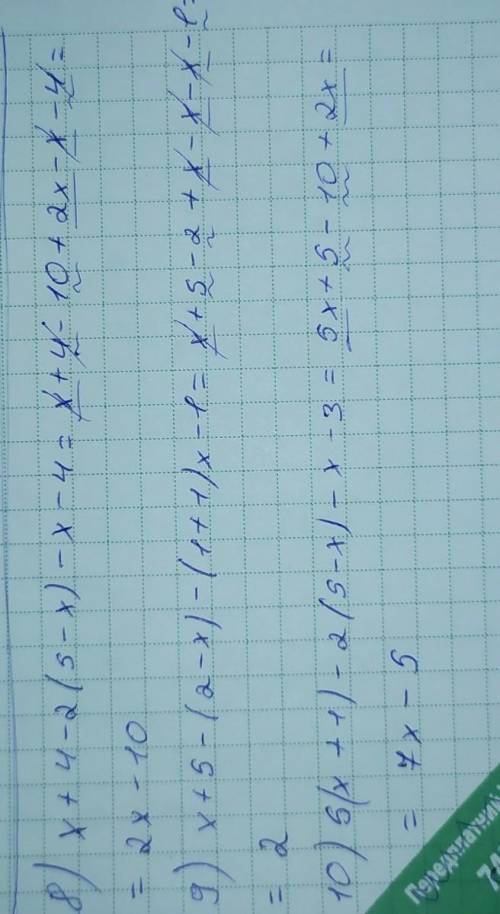 8) x + 4 - 2 (5 - x) - x - 4 = x + 4 - 10 + 2x - x - 4 =
= 2x - 10
9) x + 5 - (2 - x) - (1 + 1) x - 1 = x + 5 - 2 + x - x - x - 1 =
= 2
10) 5(x + 1) - 2 (5 - x) - x - 3 = 5x + 5 - 10 + 2x =
= 7x - 5